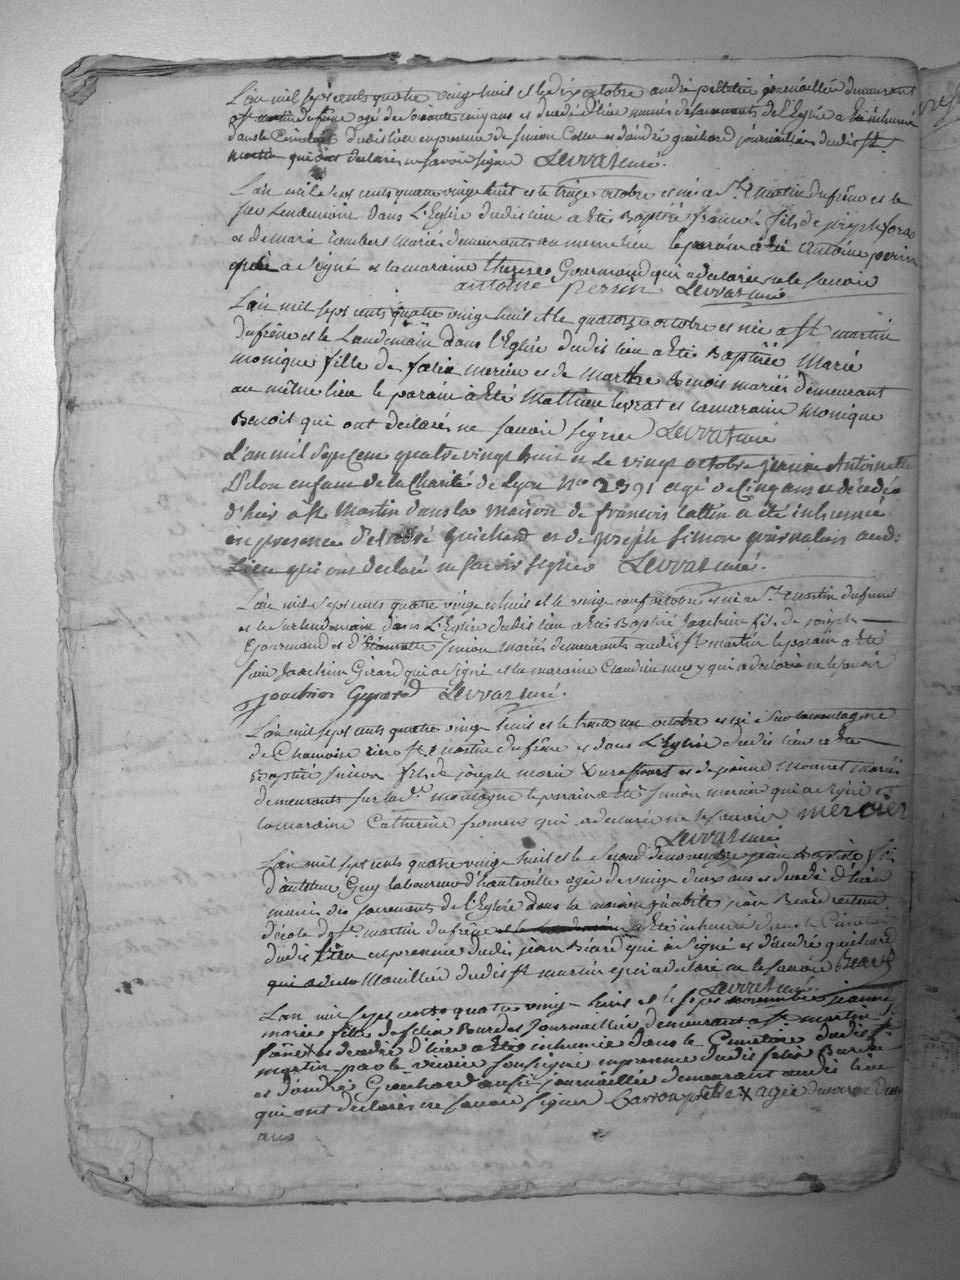 L'an mil sept cents quatre vingt huit et le dix octobre andré pelletier journaillié demeurant
St martin du frêne agé de soixante cinq ans et decedé d'hier munis des sacrements de l'Eglise a Eté inhumé
dans le Cimetière dudit lieu en presence de simon et d'andré guichard journailliers dudit St
martin qui ont declarés ne savoir signer Levrat curé.
L'an mil sept cents quatre vingt huit et le treize octobre est né a St martin du frêne et le
jour Lendemain dans L'Eglise dudit lieu a Eté Baptisé françois fils de joseph
et de marie lambert mariés demeurants au meme lieu le parain a été Antoine perrin
qui a signé et la maraine therese Gourmand qui a declarée ne le savoir
antoine perrin Levrat curé
L'an mil sept cents quatre vingt huit et le quatorze octobre est née a St martin
du frêne et le Lendemain dans l'Eglise dudit lieu a Eté Baptisée Marie
monique fille de felix mercier et de Marthe Benoit mariés demeurant
au même lieu le parain a été Mathieu levrat et la maraine Monique
Benoit qui ont declarés ne savoir signer Levrat curé
L'an mil sept Cent quatre vingt huit et Le vingt octobre jeanne Antoinette
Delon enfant de la Charité de Lyon No 2791 agé de Cinq ans et décédée
d'hier à St Martin dans la maison de françois Cattin a été inhumée
en presence d'andré guichard et de joseph simon journaliers aud.
Lieu qui ont declaré ne savoir signer Levrat curé.
L'an mil sept cents quatre vingt huit et le vingt neuf octobre est né a St Martin du frene
et le dans L'Eglise dudit lieu a Eté Baptisé joachim fils de joseph
Gourmand et d' simon mariés demeurants audit St martin le parain a Eté
joachim Girard qui a signé et la maraine Claudine qui a declarée ne le savoir
joachim Gyrard Levrat curé.
L'an mil sept cents quatre vingt huit et le trente un octobre est né sur la montagne
de Chamoise St Martin du frêne et dans L'Eglise dudit lieu a Eté
Baptisé simon fils de joseph marie et de jeanne mariés
demeurants sur lad. montagne le parain a Eté simon mercier qui a signé et
la maraine Catherine qui a declarée ne le savoir mercier
Levrat curé
L'an mil sept cents quatre vingt huit et le second de novembre jean Baptiste fils
d'antelme Guy laboureur d'hauteville agé de vingt deux ans et decedé d'hier
muni des sacrements de l'Eglise dans la maison jean Béard recteur
d'école de St martin du frêne a Eté inhumé dans le Cimetière
dudit lieu en presence dudit jean Béard qui a signé et d'andré guichard
dudit St martin qui a declaré ne le savoir Beard
Levrat curé.
L'an mil sept cents quatre vingt huit et le sept novembre jeanne
marie fille de felix Burdet Journaillié demeurant a St martin du
frêne x et decedée d'hier a Eté inhumée dans le Cimetière dudit St
martin par le vicaire soussigné en presence dudit felix Burdet
et d'andré Guichard aussi journaillié demeurant audit lieu
qui ont declarés ne savoir signer Carron prêtre x agée d'environ deux
ans